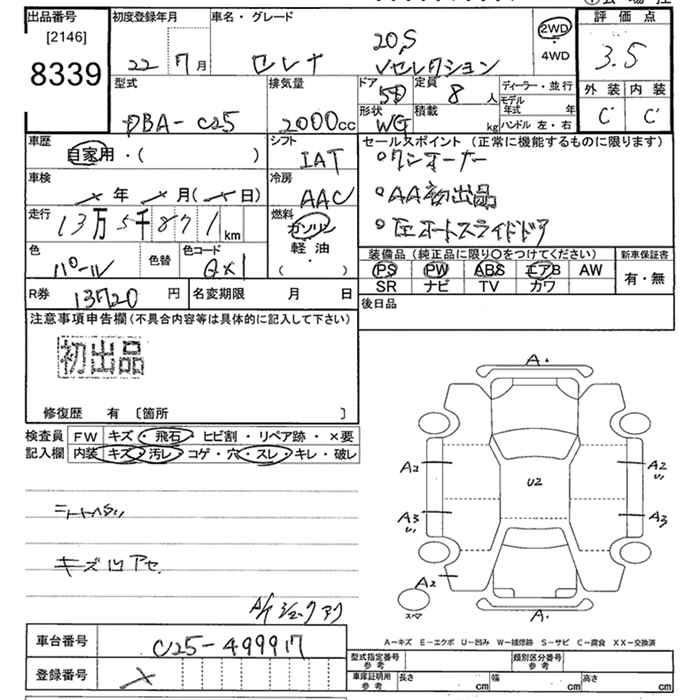 出品番号
[2146]
8339
初度登録年月
22 7月
車名・グレード
セレナ
20S
Vセレクション
2WD
・
4WD
評価点
3.5
外装 内装
C C
型式
DBA-C25
排気量
2000cc
ドア
5D
定員
8人
形状
WG
積載
kg
ディーラー・並行
モデル年式 年
ハンドル 左・右
車歴
自家用・( )
シフト
IAT
車検
年 月( 日)
冷房
AAC
走行
13万5千871km
燃料
ガソリン
軽油
( )
色
パール
色替
色コード
QX1
R券
13720円
名変期限 月 日
セールスポイント (正常に機能するものに限ります)
・ワンオーナー
・AA初出品
・左オートスライドドア
装備品(純正品に限り〇をつけてください)
PS PW ABS エアB AW
SR ナビ TV カワ
新車保証書
有・無
後日品
注意事項申告欄(不具合内容等は具体的に記入して下さい)
初出品
修復歴 有 〔箇所 〕
検査員
記入欄
FW キズ・飛石・ヒビ割・リペア跡・×要
内装 キズ・汚レ・コゲ・穴・スレ・キレ・破レ
キズ凹アセ
A
A2
U
A2
U
U2
A3
U
A3
A2
スペア
A
A-キズ E-エクボ U-凹み W-補修跡 S-サビ C-腐食 XX-交換済
車台番号
C25-499917
登録番号
型式指定番号
参考
類別区分番号
参考
車庫証明用
参考
長さ cm
幅 cm
高さ cm